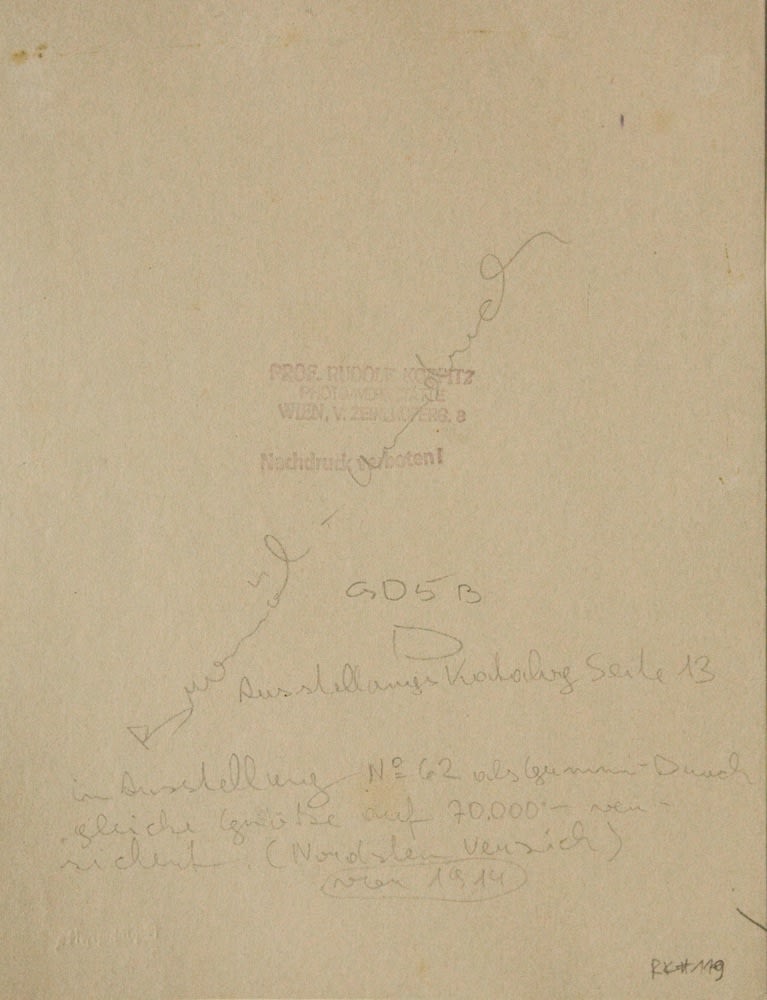 PROF. RUDOLF KOPPITZ
WIEN, V. ZEINLHOFERG. 8
Nachdruck verboten!
GD5 B
D
Ausstellungs Katalog Seite 13
in Ausstellung Nº 62 als Gummi-Druck
gleiche Größe auf 70.000·– ver-
sichert. (Nordstern Versich)
vor 1914
RK#119